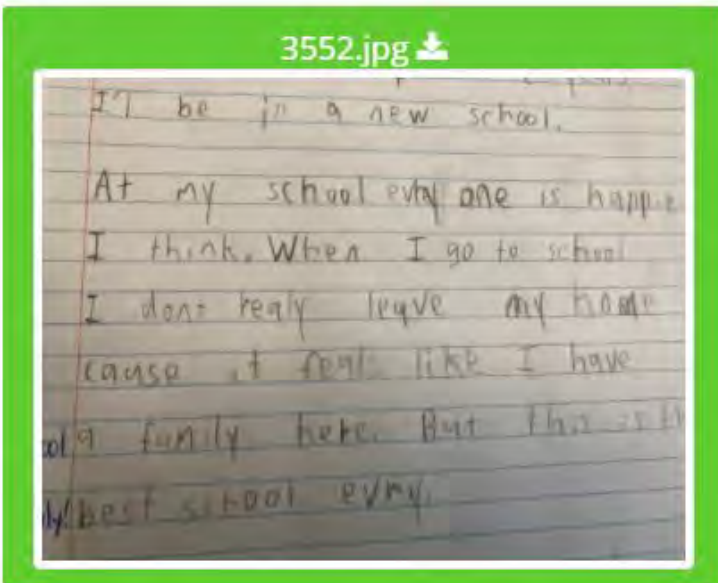 3552.jpg
I'l be in a new school.
At my school evry one is happie
I think. When I go to school
I dont realy leave my home
cause it feals like I have
ool a family here. But this is th
ly! best school evry.